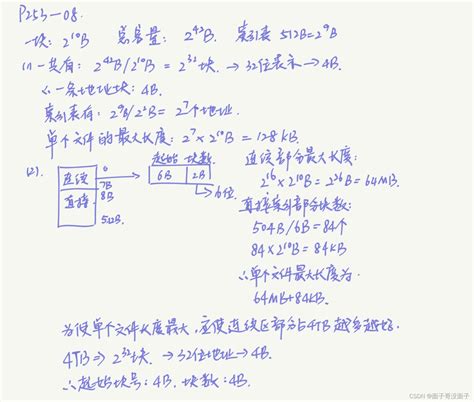 P253-08.
一块: 2¹⁰B 总容量: 2⁴²B. 索引表 512B=2⁹B
(1) 一共有: 2⁴²B/2¹⁰B = 2³²块. → 32位表示 → 4B.
∴一条地址块: 4B.
索引表有: 2⁹B/2²B = 2⁷个地址.
单个文件的最大长度: 2⁷×2¹⁰B = 128KB
(2).
起始 块数
连续 0
7B
直接 8B
512B
6B 2B
→16位.
连续部分最大长度:
2¹⁶×2¹⁰B = 2²⁶B = 64MB.
直接索引部分块数:
504B/6B = 84个
84×2¹⁰B = 84KB
∴单个文件最大长度为.
64MB+84KB.
为使单个文件长度最大, 应使连续区部分占4TB越多越好.
4TB ⇒ 2³²块. → 32位地址 → 4B.
∴起始块号: 4B. 块数: 4B.
CSDN @圈子哥没圈子